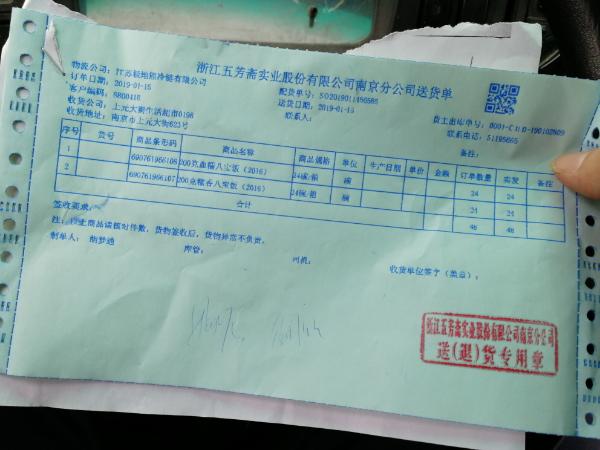 浙江五芳斋实业股份有限公司南京分公司送货单
物流公司：江苏极地熊冷链有限公司
订单日期：2019-01-15 配货单号：
客户编码：8800416 送货日期：2019-01-15 货主出库单号：
收货公司：上元大街生活超市0198 联系人： 联系电话：51195665
收货地址：南京市上元大街623号 备注：
序号 货号 商品条形码 商品名称 商品规格 单位 生产日期 单价 金额 订单数量 实发 备注
1 690761966108 200克血糯八宝饭（2016） 24碗/箱 碗 24 24
2 690761966107 200克糯香八宝饭（2016） 24碗/箱 碗 24 24
合计 48 48
签收要求：
注：以上商品请核对件数，货物签收后，货物异常不负责。
制单人： 库管： 司机： 收货单位签字（盖章）：
浙江五芳斋实业股份有限公司南京分公司
送(退)货专用章